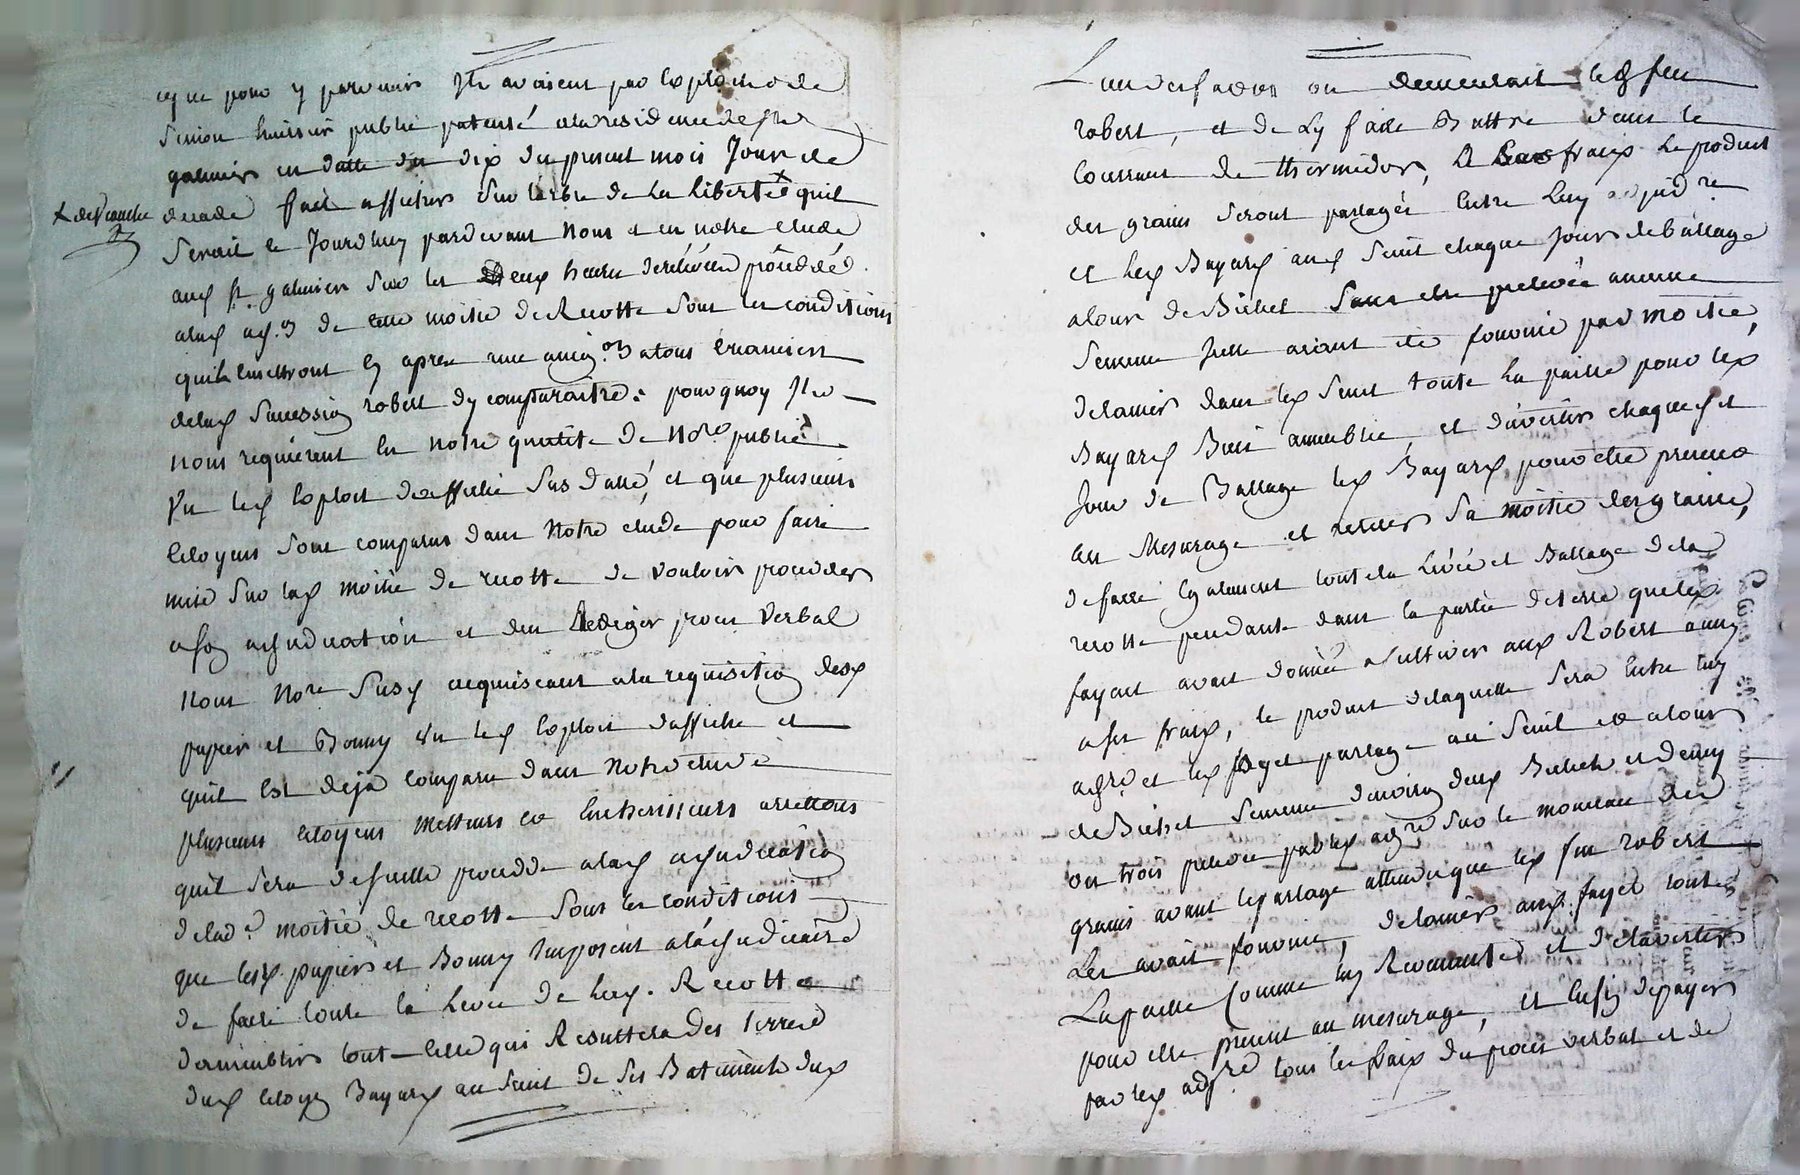 que pour y parvenir Ils avaient par Exploit de
Simon huissier public patenté a la residence de St
galmier en datte du dix du present mois Jour de
decade fait afficher sur l'arbre de La Liberté + quil
+ de Veauche
Serait ce Jourdhuy pardevant Nous et en notre etude
aud St. galmier sur les deux heures de relevée procédé
a lad adjon de cette moitié de Recotte sous les conditions
quils Emettront Cy apres
delad Succession robert dy comparaitre : pourquoy Ils
nous requierent En notre qualité de Nore public
Vu led Exploit d'affiche sus datté, et que plusieurs
Citoyens sont comparus dans Notre etude pour faire
mise sur lad moitié de recotte de vouloir proceder
a son adjudication et den Rediger proces Verbal
Nous Nore susd acquiescant a la requisition desd
papier et Bonny vu led Exploit daffiche et
quil Est déja comparu dans Notre etude
plusieurs Citoyens Metteurs et Encherisseurs arrettons
quil sera de suitte procedde a lad adjudication
de lade moitié de recotte sous les conditions
que lesd papier et Bonny Imposent a ladjudicaire
de faire toute la Levée de lad. Recotte
dammeublir toute celle qui Resultera des terres
dud Citoyen Bayard au sueil de ses Batiments dud
Lieu des faron ou demeurait led feu
robert, et de Ly faire Battre dans le
Courant de thermidor, a ses fraix Le produit
des grains seront partagés Entre Luy adjudre
et led Bayard aud sueil chaque Jour de battage
a lour de Bichet sans etre prelevée aucune
semence Icelle aiant été fournie par moitié,
delaisser dans led sueil toute la paille pour led
Bayard Bien ameublie, et davertir chaque
Jour de Battage led Bayard pour etre present
au Mesurage et retirer sa moitié des grains,
de faire Egalement toute la Levée et Battage de la
recotte pendante dans la partie de terre que led
fayet avait donnée a cultiver aud Robert aussy
a ses fraix, le produit de laquelle sera Entre luy
adjre et led fayet partagé au sueil et a lour
de Bichet semence denviron deux Bichets et demy
ou trois prelevée par led adjre sur le monceau des
grains avant le partage attendu que led feu robert
Les avait fournie, delaisser aud. fayet toute
La paille Comme luy Revenante et de lavertir
pour etre present au mesurage, et Enfin de payer
par led adjre tous les fraix du proces verbal et de